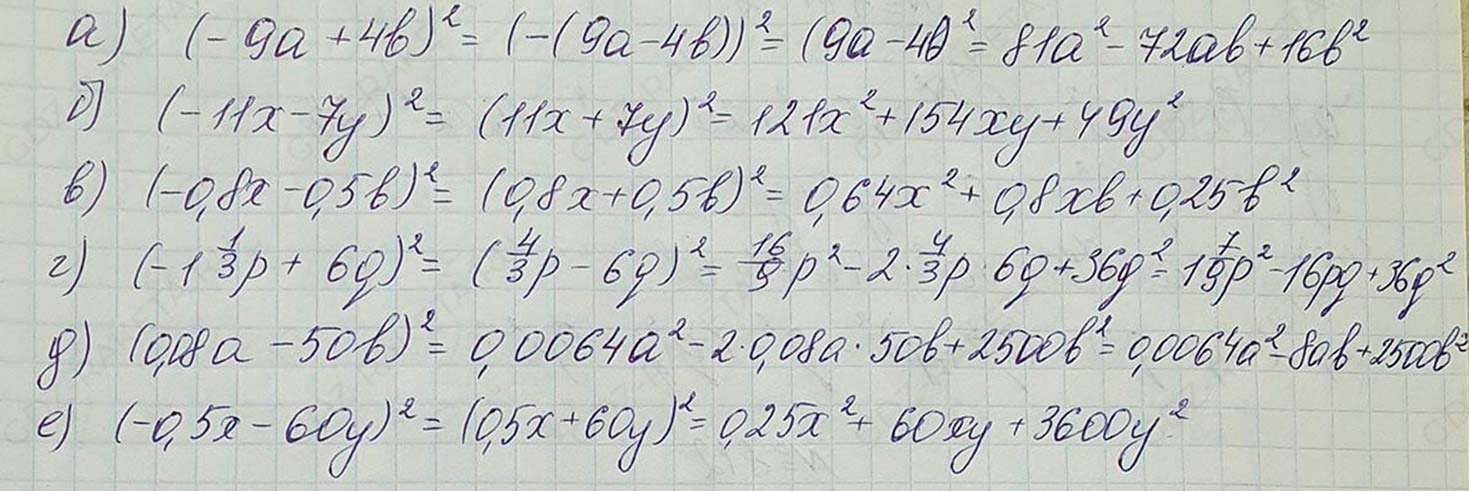 а) (-9a+4b)² = (-(9a-4b))² = (9a-4b² = 81a² - 72ab + 16b²
б) (-11x-7y)² = (11x+7y)² = 121x² + 154xy + 49y²
в) (-0,8x-0,5b)² = (0,8x+0,5b)² = 0,64x² + 0,8xb + 0,25b²
г) (-1 1/3 p + 6q)² = (4/3 p - 6q)² = 16/9 p² - 2·4/3 p·6q + 36q² = 1 7/9 p² - 16pq + 36q²
д) (0,08a - 50b)² = 0,0064a² - 2·0,08a·50b + 2500b² = 0,0064a² - 8ab + 2500b²
е) (-0,5x - 60y)² = (0,5x+60y)² = 0,25x² + 60xy + 3600y²